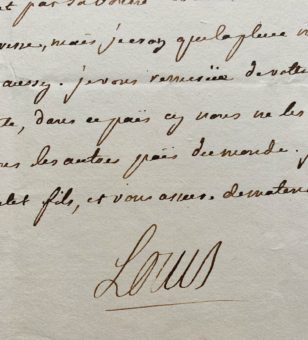 t par
mais je croy que la place n
aussy. je vous remercie de votre
te, dans ce païs cy nous ne les
les autres païs du monde.
et fils, et vous assure de ma ten
Louis